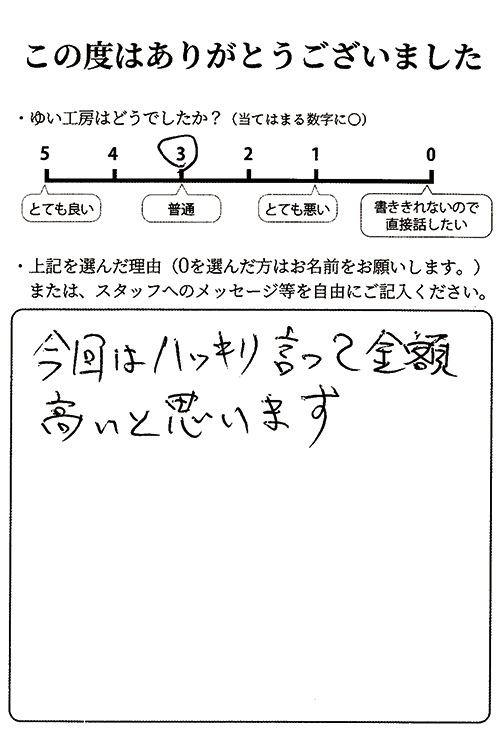 この度はありがとうございました
・ゆい工房はどうでしたか？（当てはまる数字に〇）
5 4 3 2 1 0
とても良い 普通 とても悪い 書ききれないので
直接話したい
・上記を選んだ理由（0を選んだ方はお名前をお願いします。）
または、スタッフへのメッセージ等を自由にご記入ください。
今回はハッキリ言って金額
高いと思います